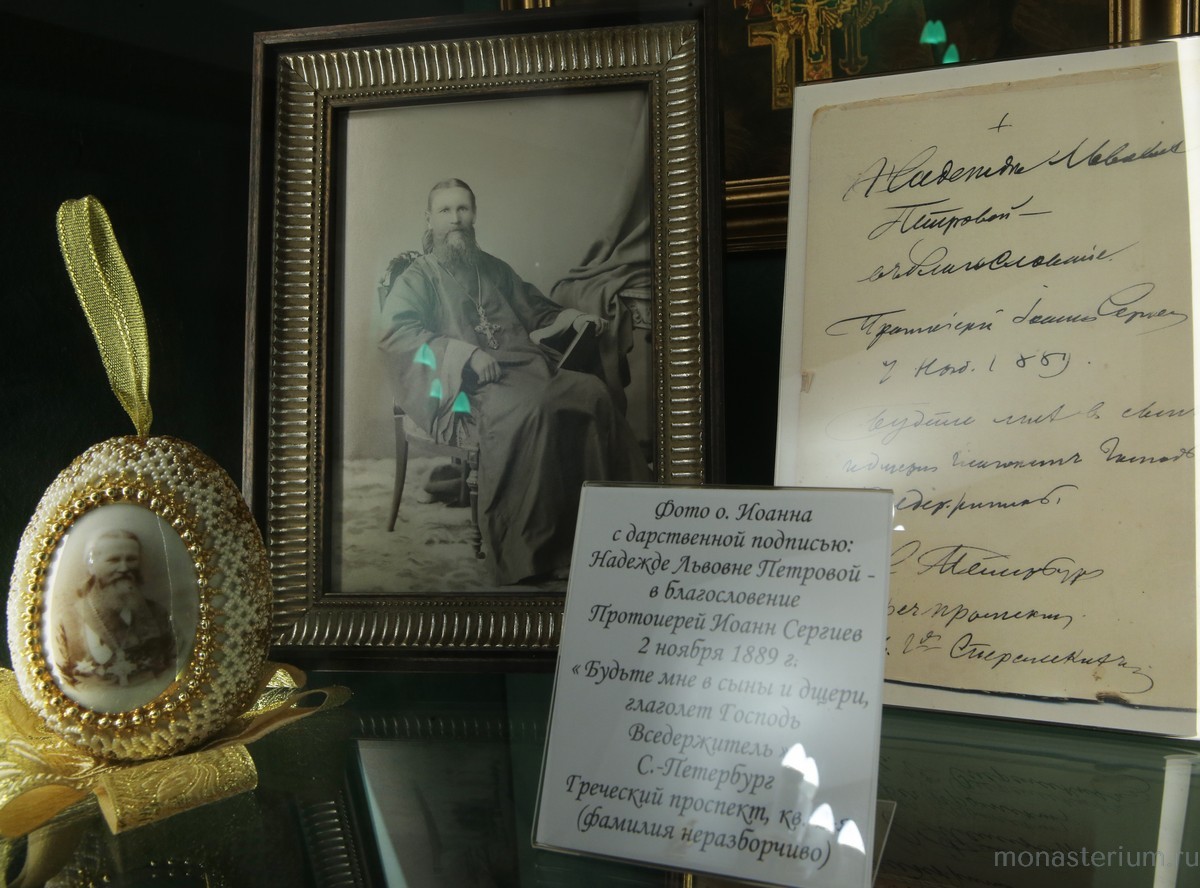 Надежде Львовне
Петровой –
въ благословенiе.
Протоiерей Iоаннъ Сергiев
2 Нояб. 1889.
Будите мнѣ в сыны
и дщери глаголетъ Господь
Вседержитель.
Фото о. Иоанна
с дарственной подписью:
Надежде Львовне Петровой -
в благословение
Протоиерей Иоанн Сергиев
2 ноября 1889 г.
«Будьте мне в сыны и дщери,
глаголет Господь
Вседержитель»
С.-Петербург
Греческий проспект, кв.
(фамилия неразборчиво)
monasterium.ru